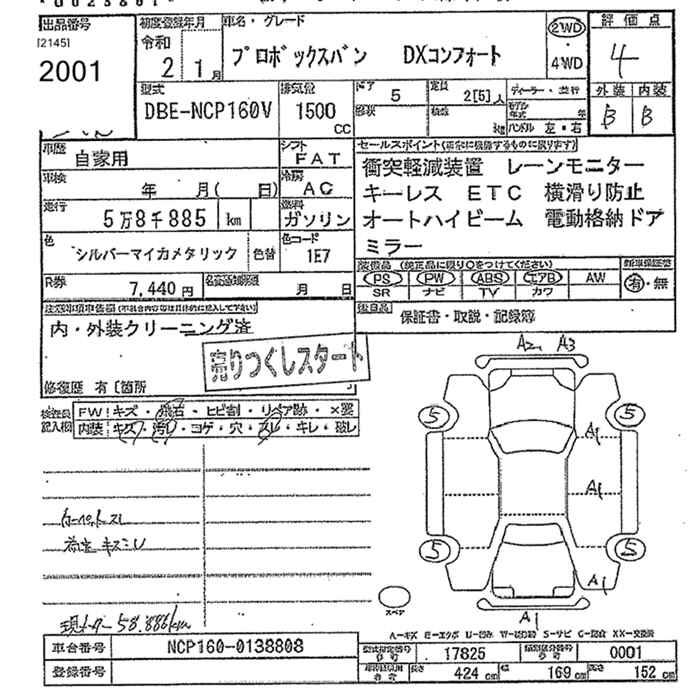 出品番号
[2145]
2001
初度登録年月
令和
2 1月
車名・グレード
プロボックスバン DXコンフォート
2WD
4WD
評価点
4
外装 内装
B B
型式
DBE-NCP160V
排気量
1500
CC
ドア
5
形状
定員
2[5]人
積載
kg
ディーラー・並行
モデル
年式 年
ハンドル 左・右
車歴
自家用
シフト
FAT
車検
年 月( 日)
冷房
AC
走行
5万8千885 km
燃料
ガソリン
色
シルバーマイカメタリック
色替
色コード
1E7
R券
7,440円
月 日
セールスポイント
衝突軽減装置 レーンモニター
キーレス ETC 横滑り防止
オートハイビーム 電動格納ドア
ミラー
装備品 (純正品に限り○をつけてください)
PS PW ABS エアB AW
SR ナビ TV カワ
新車保証書
有・無
後日品
保証書・取説・記録簿
内・外装クリーニング済
売りつくしスタート
修復歴 有[箇所
検査員
記入欄
FW キズ・飛石・ヒビ割・リペア跡・×要
内装 キズ・汚れ・コゲ・穴・スレ・キレ・破レ
カーペットスレ
荷室キズミU
現メーター58,886km
A2 A3
5 5
A1
A1
5 5
A1
スペア
A1
A-キズ E-エクボ U-凹み W-波打動 S-サビ C-腐食 XX-交換済
車台番号
NCP160-0138808
登録番号
型式指定番号
17825
類別区分番号
0001
長さ 424 cm 幅 169 cm 高さ 152 cm